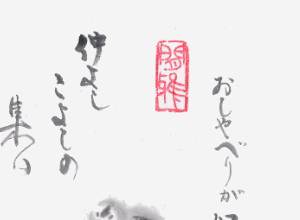 おしゃべりが
仲よし
こよしの
集い